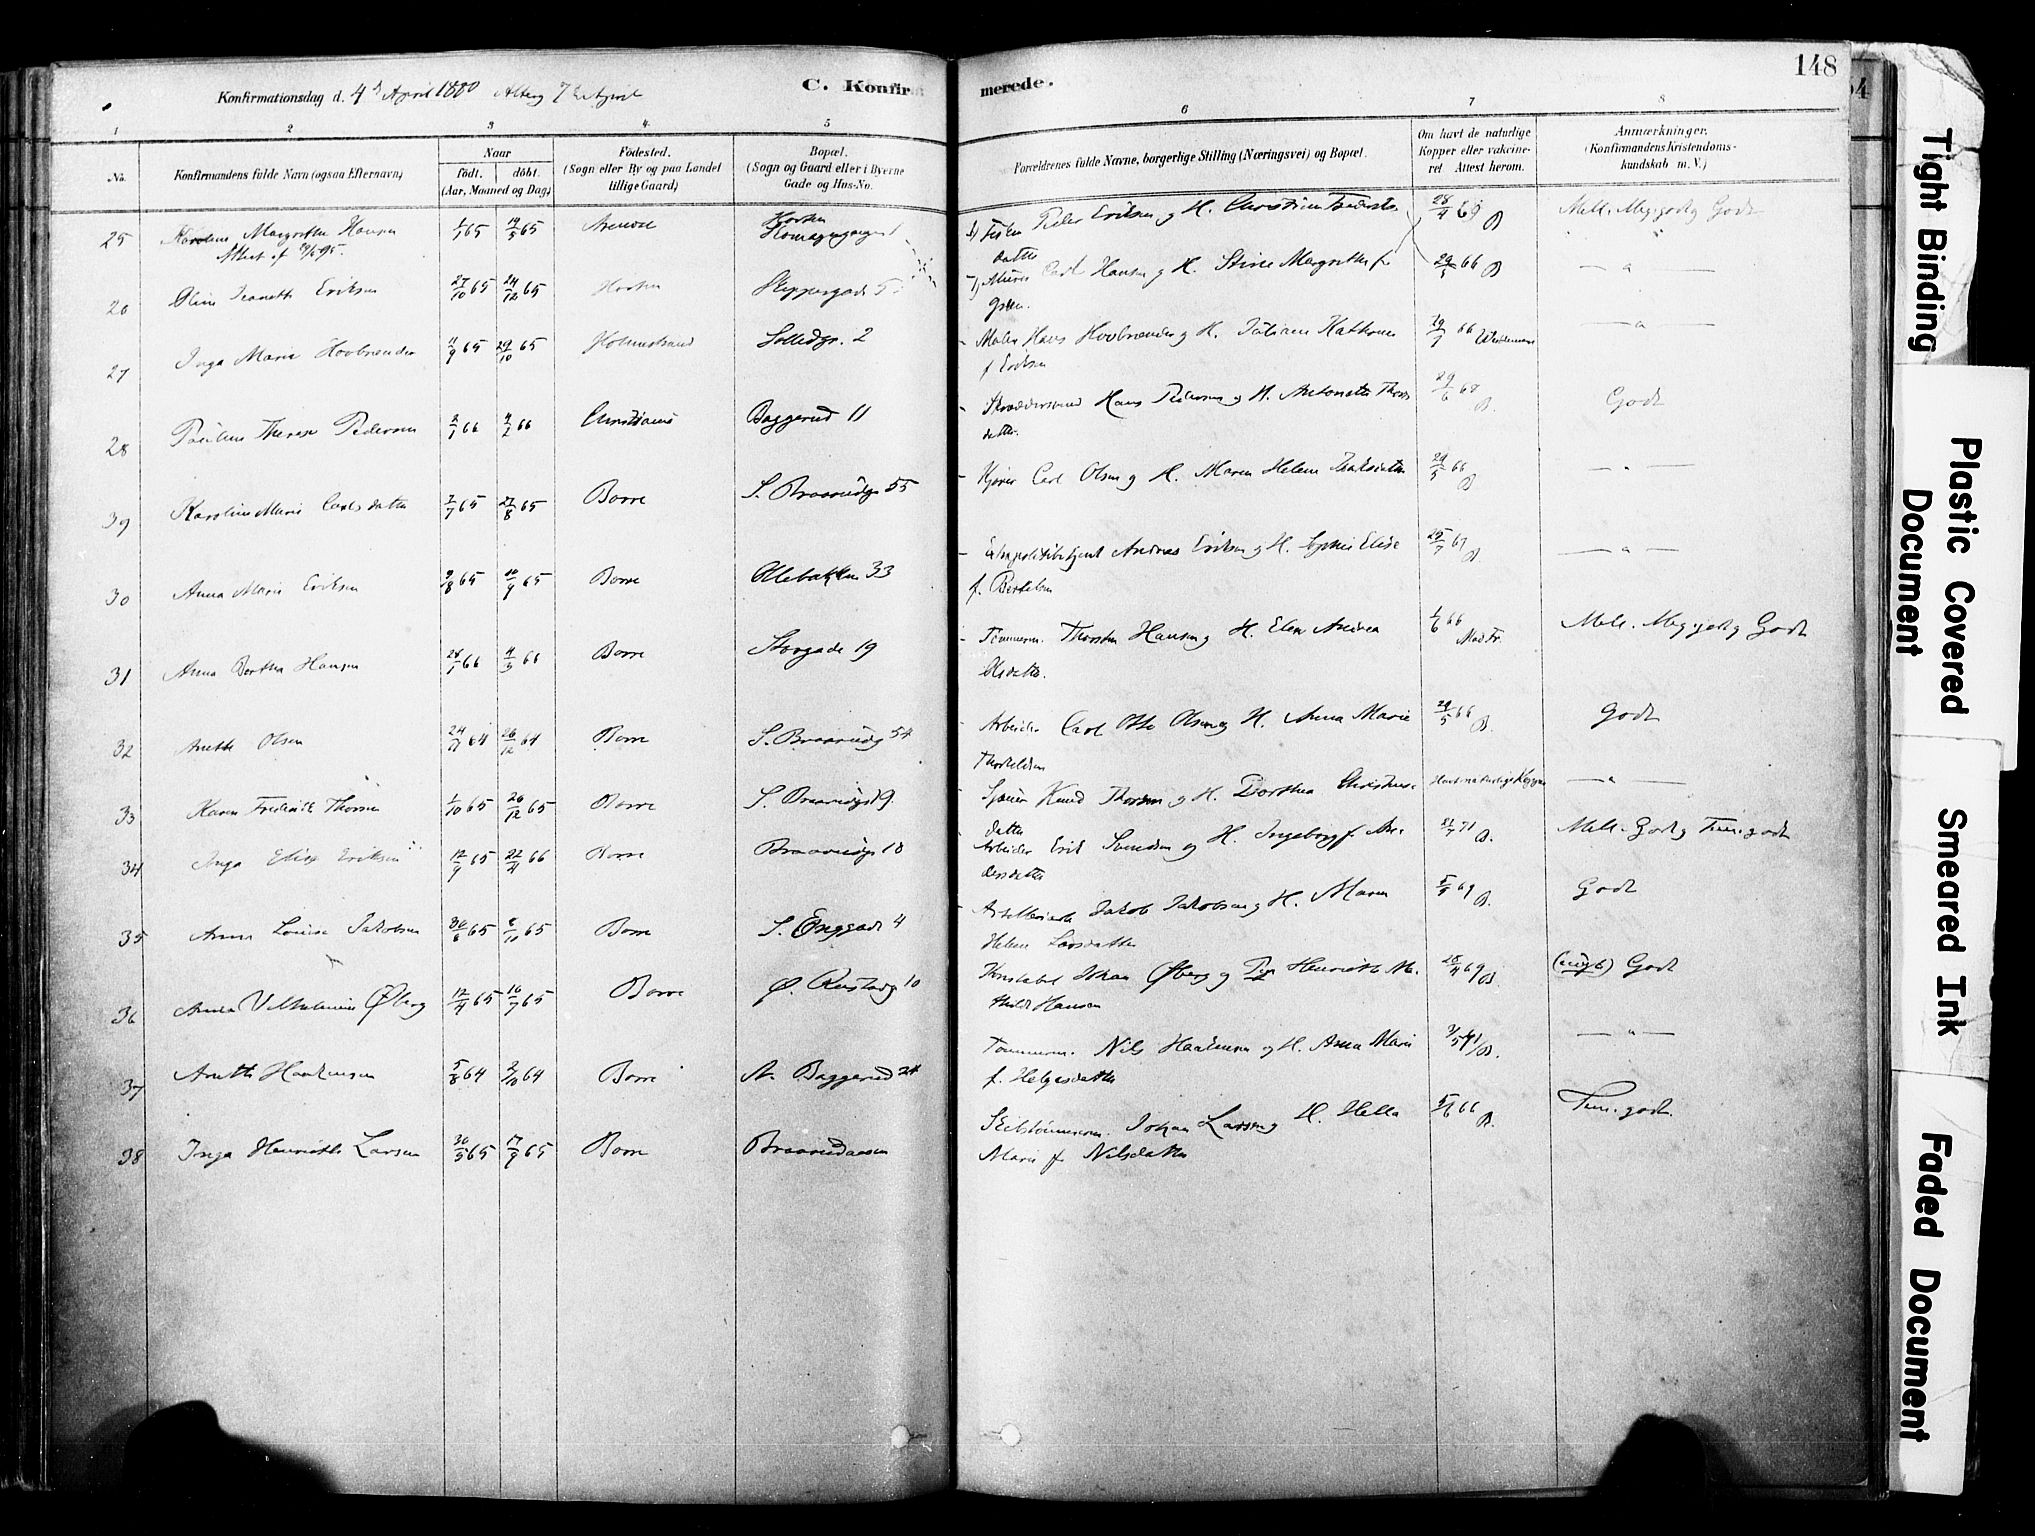 148
Konfirmationsdag d. 4de April 1880 Alterg. 7de April
C. Konfir merede.
1 2 3 4 5 6 7 8
No. Konfirmandens fulde Navn (ogsaa Efternavn)
Naar født. døbt. (Aar, Maaned og Dag)
Fødested. (Sogn eller By og paa Landet tillige Gaard)
Bopæl. (Sogn og Gaard eller i Byerne Gade og Hus-No.
Forældrenes fulde Navne, borgerlige Stilling (Næringsvei) og Bopæl.
Om havt de naturlige Kopper eller vakcineret Attest herom.
Anmærkninger. (Konfirmandens Kristendomskundskab m. V.)
25 Karoline Margrethe Hansen 1/1 65 14/5 65 Horten
Attest af
Peder Eriksen og H. 28/4 69 B Mell. Meg. godt og Godt
datter
26 Oline Jeanette Eriksen 27/10 65 24/12 65 Horten Skippergade 5
Carl Hansen og H. Stine Margrethe f. 29/5 66 B — " —
27 Inga Marie Hovbrender 11/9 65 29/10 65 Holmestrand 2
Maler Hans Hovbrender og H. Juliane Kathrine 66 — " —
f Eriksen
28 Pauline Therese Pedersen 2/1 66 4/2 66 Christiania Baggerud 11
Skræddersvend Hans Pedersen og H. Antonette Thors 29/6 68 B. Godt
datter.
39 Karoline Marie Carlsdatter 2/7 65 27/8 65 Borre S. Braarudg 55
Kjører Carl Olsen og H. Maren Helene 29/5 66 B — " —
30 Anna Marie Eriksen 9/8 65 10/9 65 Borre Ollebakken 33
Andreas Eriksen og H. Sophie Elise 25/7 67 B — " —
f. Bertelsen
31 Anna Berthe Hansen 28/1 66 4/3 66 Borre Storgade 19
Tømmerm. Thorsten Hansen og H. Elen Andrea 1/6 66 Mad. Fr. Mell. Meg. godt og Godt
Olsdatter.
32 Anette Olsen 24/11 64 26/12 64 Borre S. Braarudg 54
Arbeider Carl Otto Olsen og H. Anna Marie 29/5 66 B. Godt
Thorkeldsen
33 Karen Fredrikke Thorsen 1/10 65 26/12 65 Borre S. Braarudg 19.
Knud Thorsen og H. Dorthea Havt naturlige Kopper — " —
datter
34 Inga Elise Eriksen 12/9 65 22/4 66 Borre Braarudg 18
Arbeider Erik Svendsen og H. Ingeborg f. An- 71 B. Mell. Godt og Tem. godt
dersdatter
35 Anna Louise Jakobsen 30/6 65 8/10 65 Borre S. Enggade 4
Jakob Jakobsen og H. Maren 69 B. Godt
Helene Larsdatter
36 Anna Vilhelmine Øberg 12/4 65 16/7 65 Borre Ø. Rustadg 10
Konstabel Johan Øberg og Pige Henriette Ma- 28/4 69 B. Godt
thilde Hansen
37 Anette Haakensen 5/8 64 9/10 64 Borre N. Baggerud 24
Tømmerm. Nils Haakensen og H. Anna Marie B. — " —
f. Helgesdatter
38 Inga Henriette Larsen 30/5 65 17/9 65 Borre Braarudaasen
Skibstømmerm. Johan Larsen og H. Hella 66 B. Tem. godt
Marie f. Nilsdatter
Tight Binding
Plastic Covered Document
Smeared Ink
Faded Document